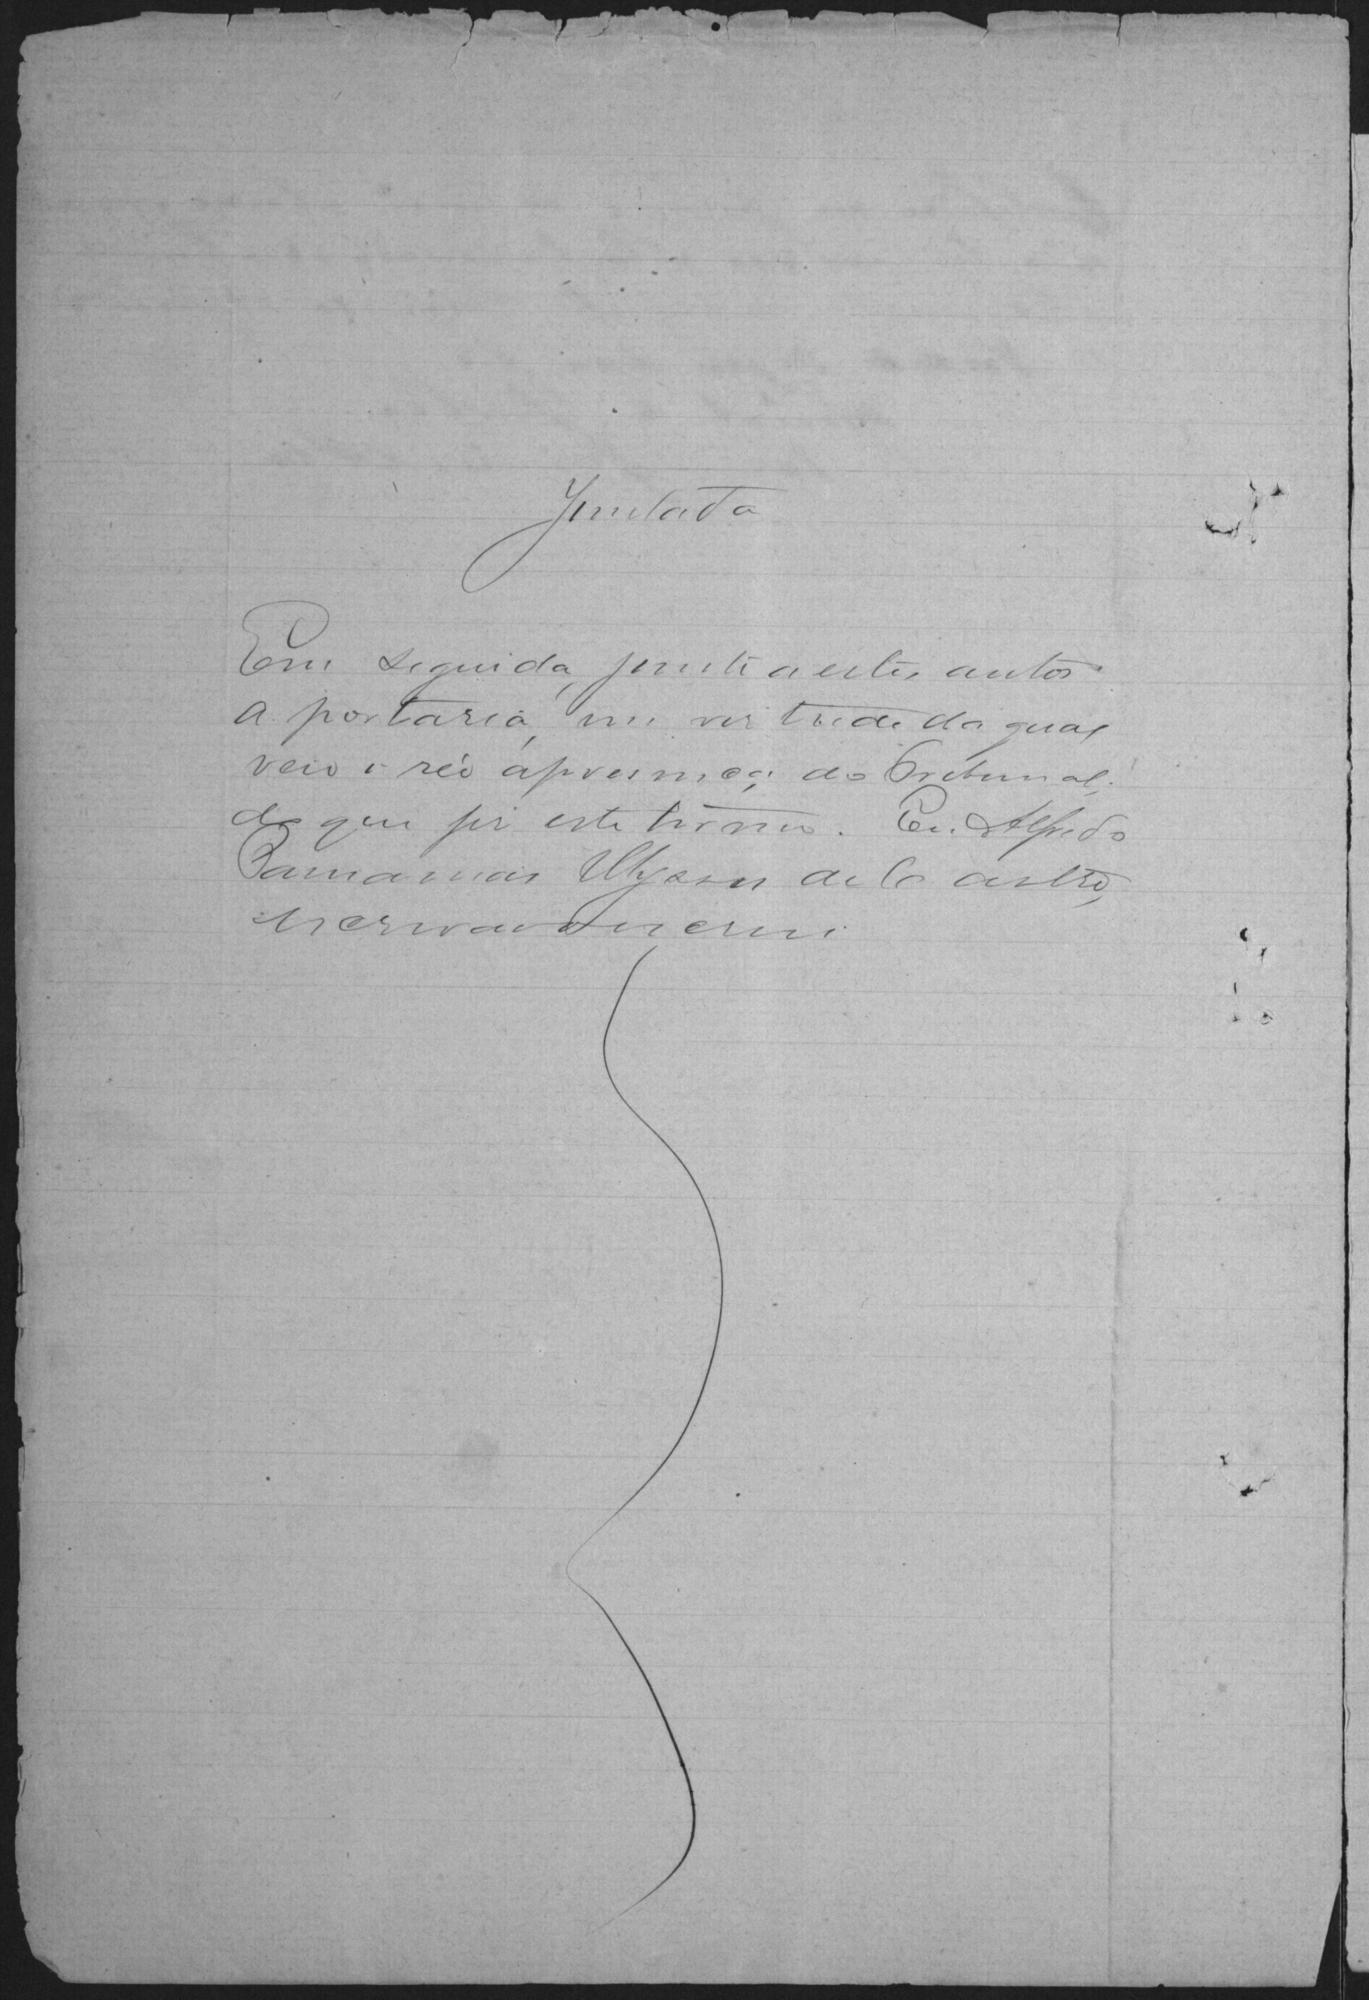 Juntada
Em seguida, junto a estes autos
a portaria, em virtude da qual
veio o réo á presença do Tribunal;
do que fiz este termo. Eu Alfredo
Ulysses de Castro,
escrivão o escrevi